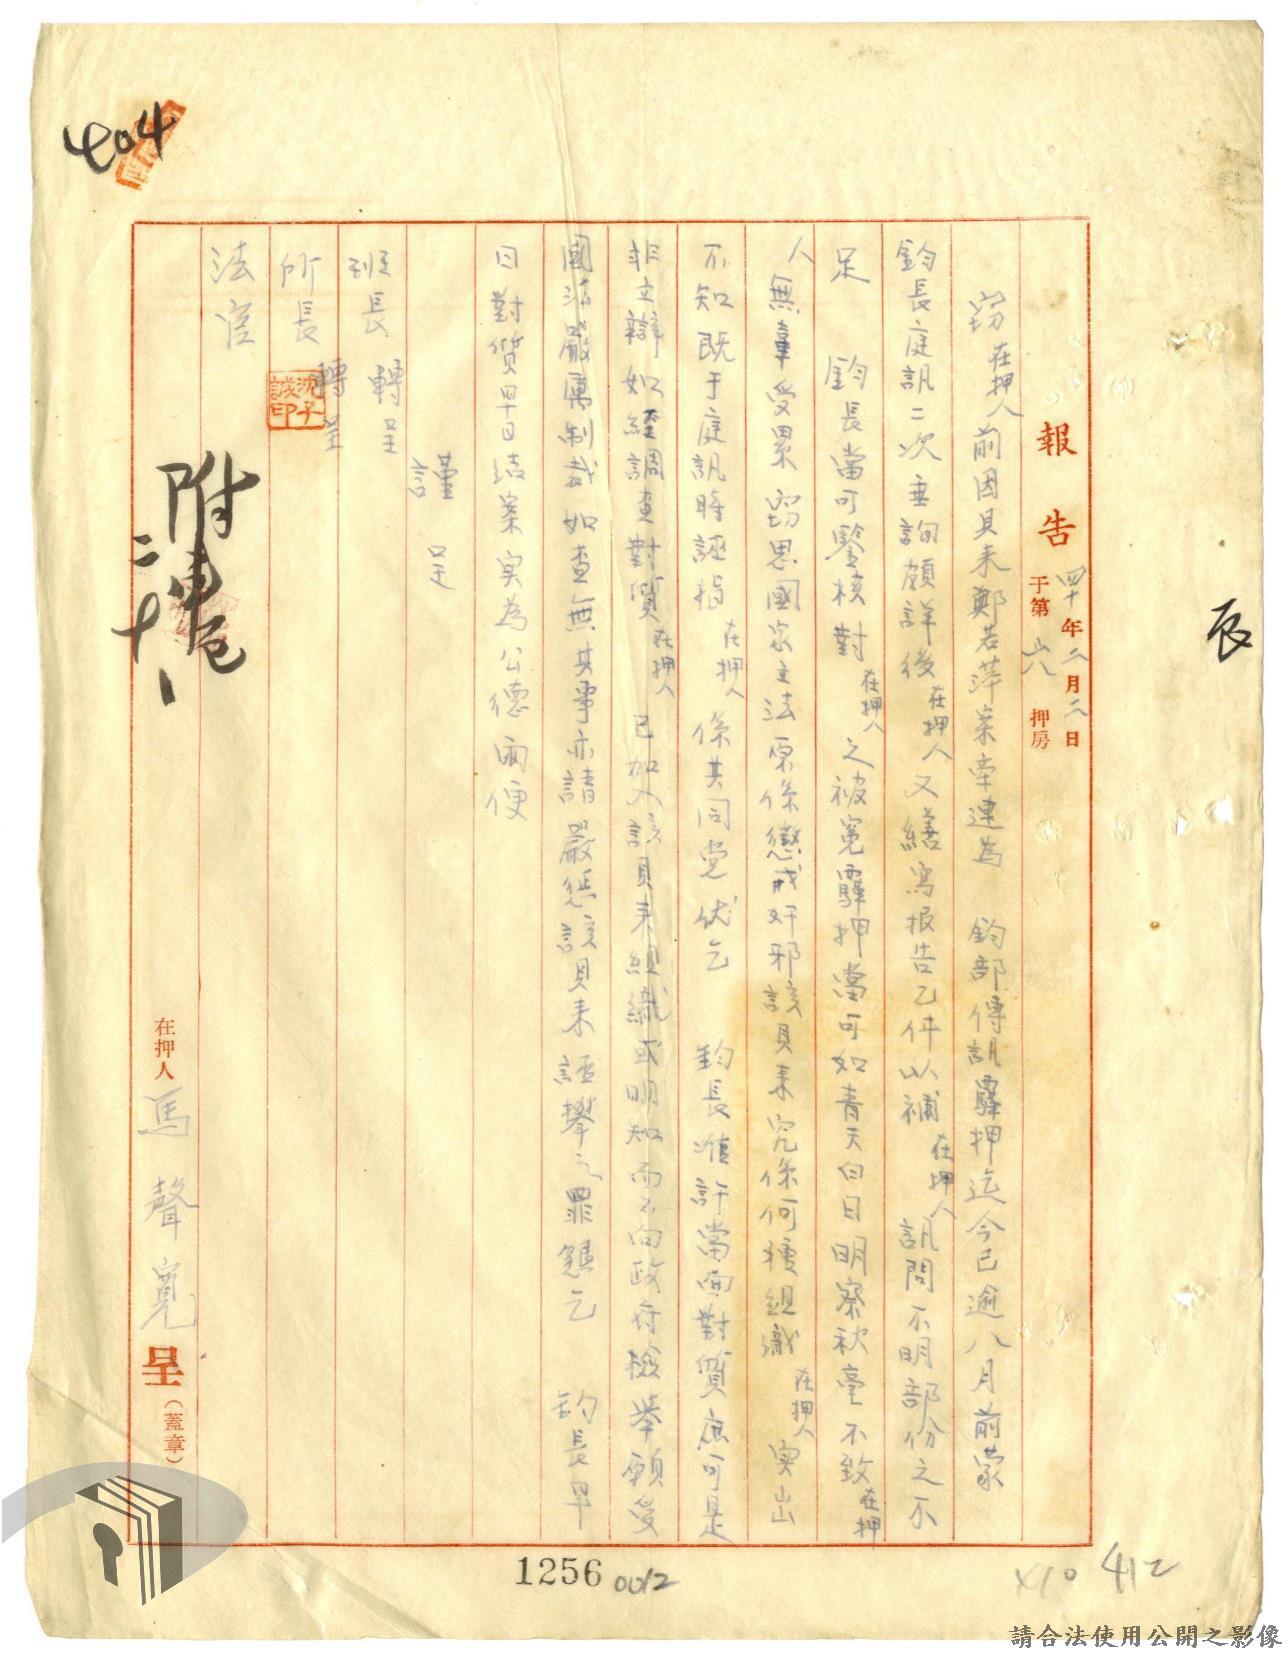 報告
四十年二月二日
于第六八押房
竊在押人前因貝來鄭若萍案牽連為　鈞部傳訊羈押迄今已逾八月前蒙
鈞長庭訊二次垂詢頗詳後在押人又繕寫報告乙件以補在押人訊問不明部份之不
足　鈞長當可鑒核對在押人之被冤羈押當可如青天白日明察秋毫不致在押
人無辜受累竊思國家立法原係懲戒奸邪該貝來究係何種組織在押人实出
不知既于庭訊時誣指在押人係其同党伏乞　鈞長准許當面對質庶可是
非立辯如經調查對質在押人已加入該貝來組織或明知而不向政府檢举願受
國法嚴厲制裁如查無其事亦請嚴懲該貝來誣攀之罪懇乞　鈞長早
日對質早日結案实為公德兩便
謹呈
班長轉呈
所長轉呈
法官
在押人馬聲寬呈（蓋章）
附卷
二十八
沈子誠印
辰
404
1256
0012
410
412
請合法使用公開之影像